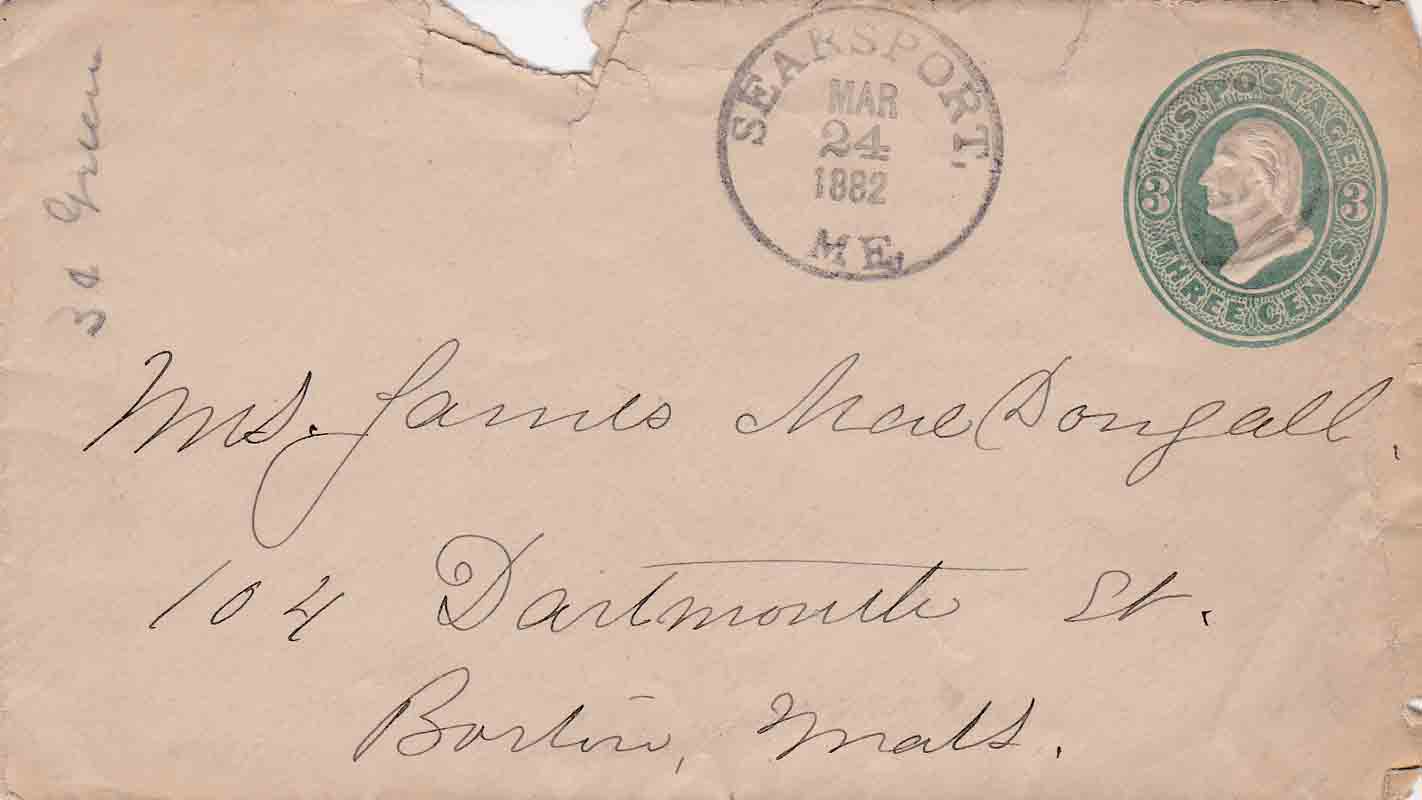 3¢ Green
SEARSPORT,
MAR
24
1882
ME.
U.S. POSTAGE
3 3
THREE CENTS
Mrs. James MacDougall,
104 Dartmouth St.
Boston, Mass.